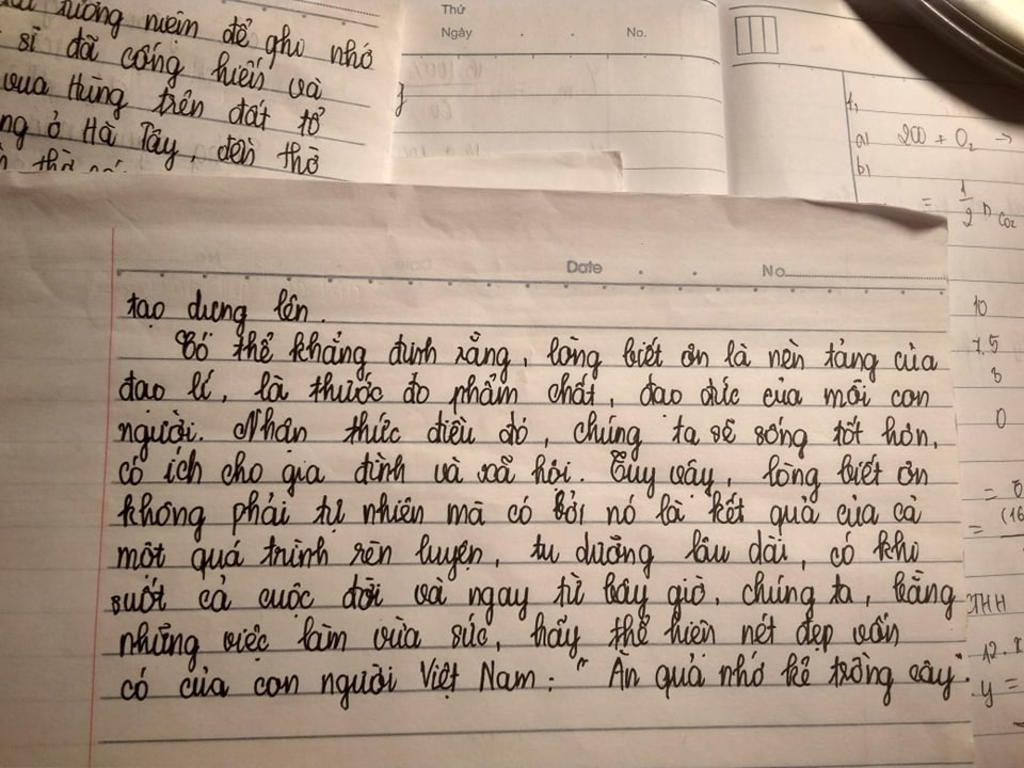 tưởng niệm để ghi nhớ
sĩ đã cống hiến và
vua Hùng trên đất tổ
ng ở Hà Tây, đền thờ
Thứ
Ngày . . No.
1,
a) 2CO + O₂ →
b)
= 1/2 n CO₂
Date . . No.
tạo dựng lên.
Có thể khẳng định rằng, lòng biết ơn là nền tảng của
đạo lí, là thước đo phẩm chất, đạo đức của mỗi con
người. Nhận thức điều đó, chúng ta sẽ sống tốt hơn,
có ích cho gia đình và xã hội. Tuy vậy, lòng biết ơn
không phải tự nhiên mà có bởi nó là kết quả của cả
một quá trình rèn luyện, tu dưỡng lâu dài, có khi
suốt cả cuộc đời và ngay từ bây giờ, chúng ta, bằng
những việc làm vừa sức, hãy thể hiện nét đẹp vốn
có của con người Việt Nam: " Ăn quả nhớ kẻ trồng cây".
10
7,5
8
0
=
= (16
THH
12.
y =